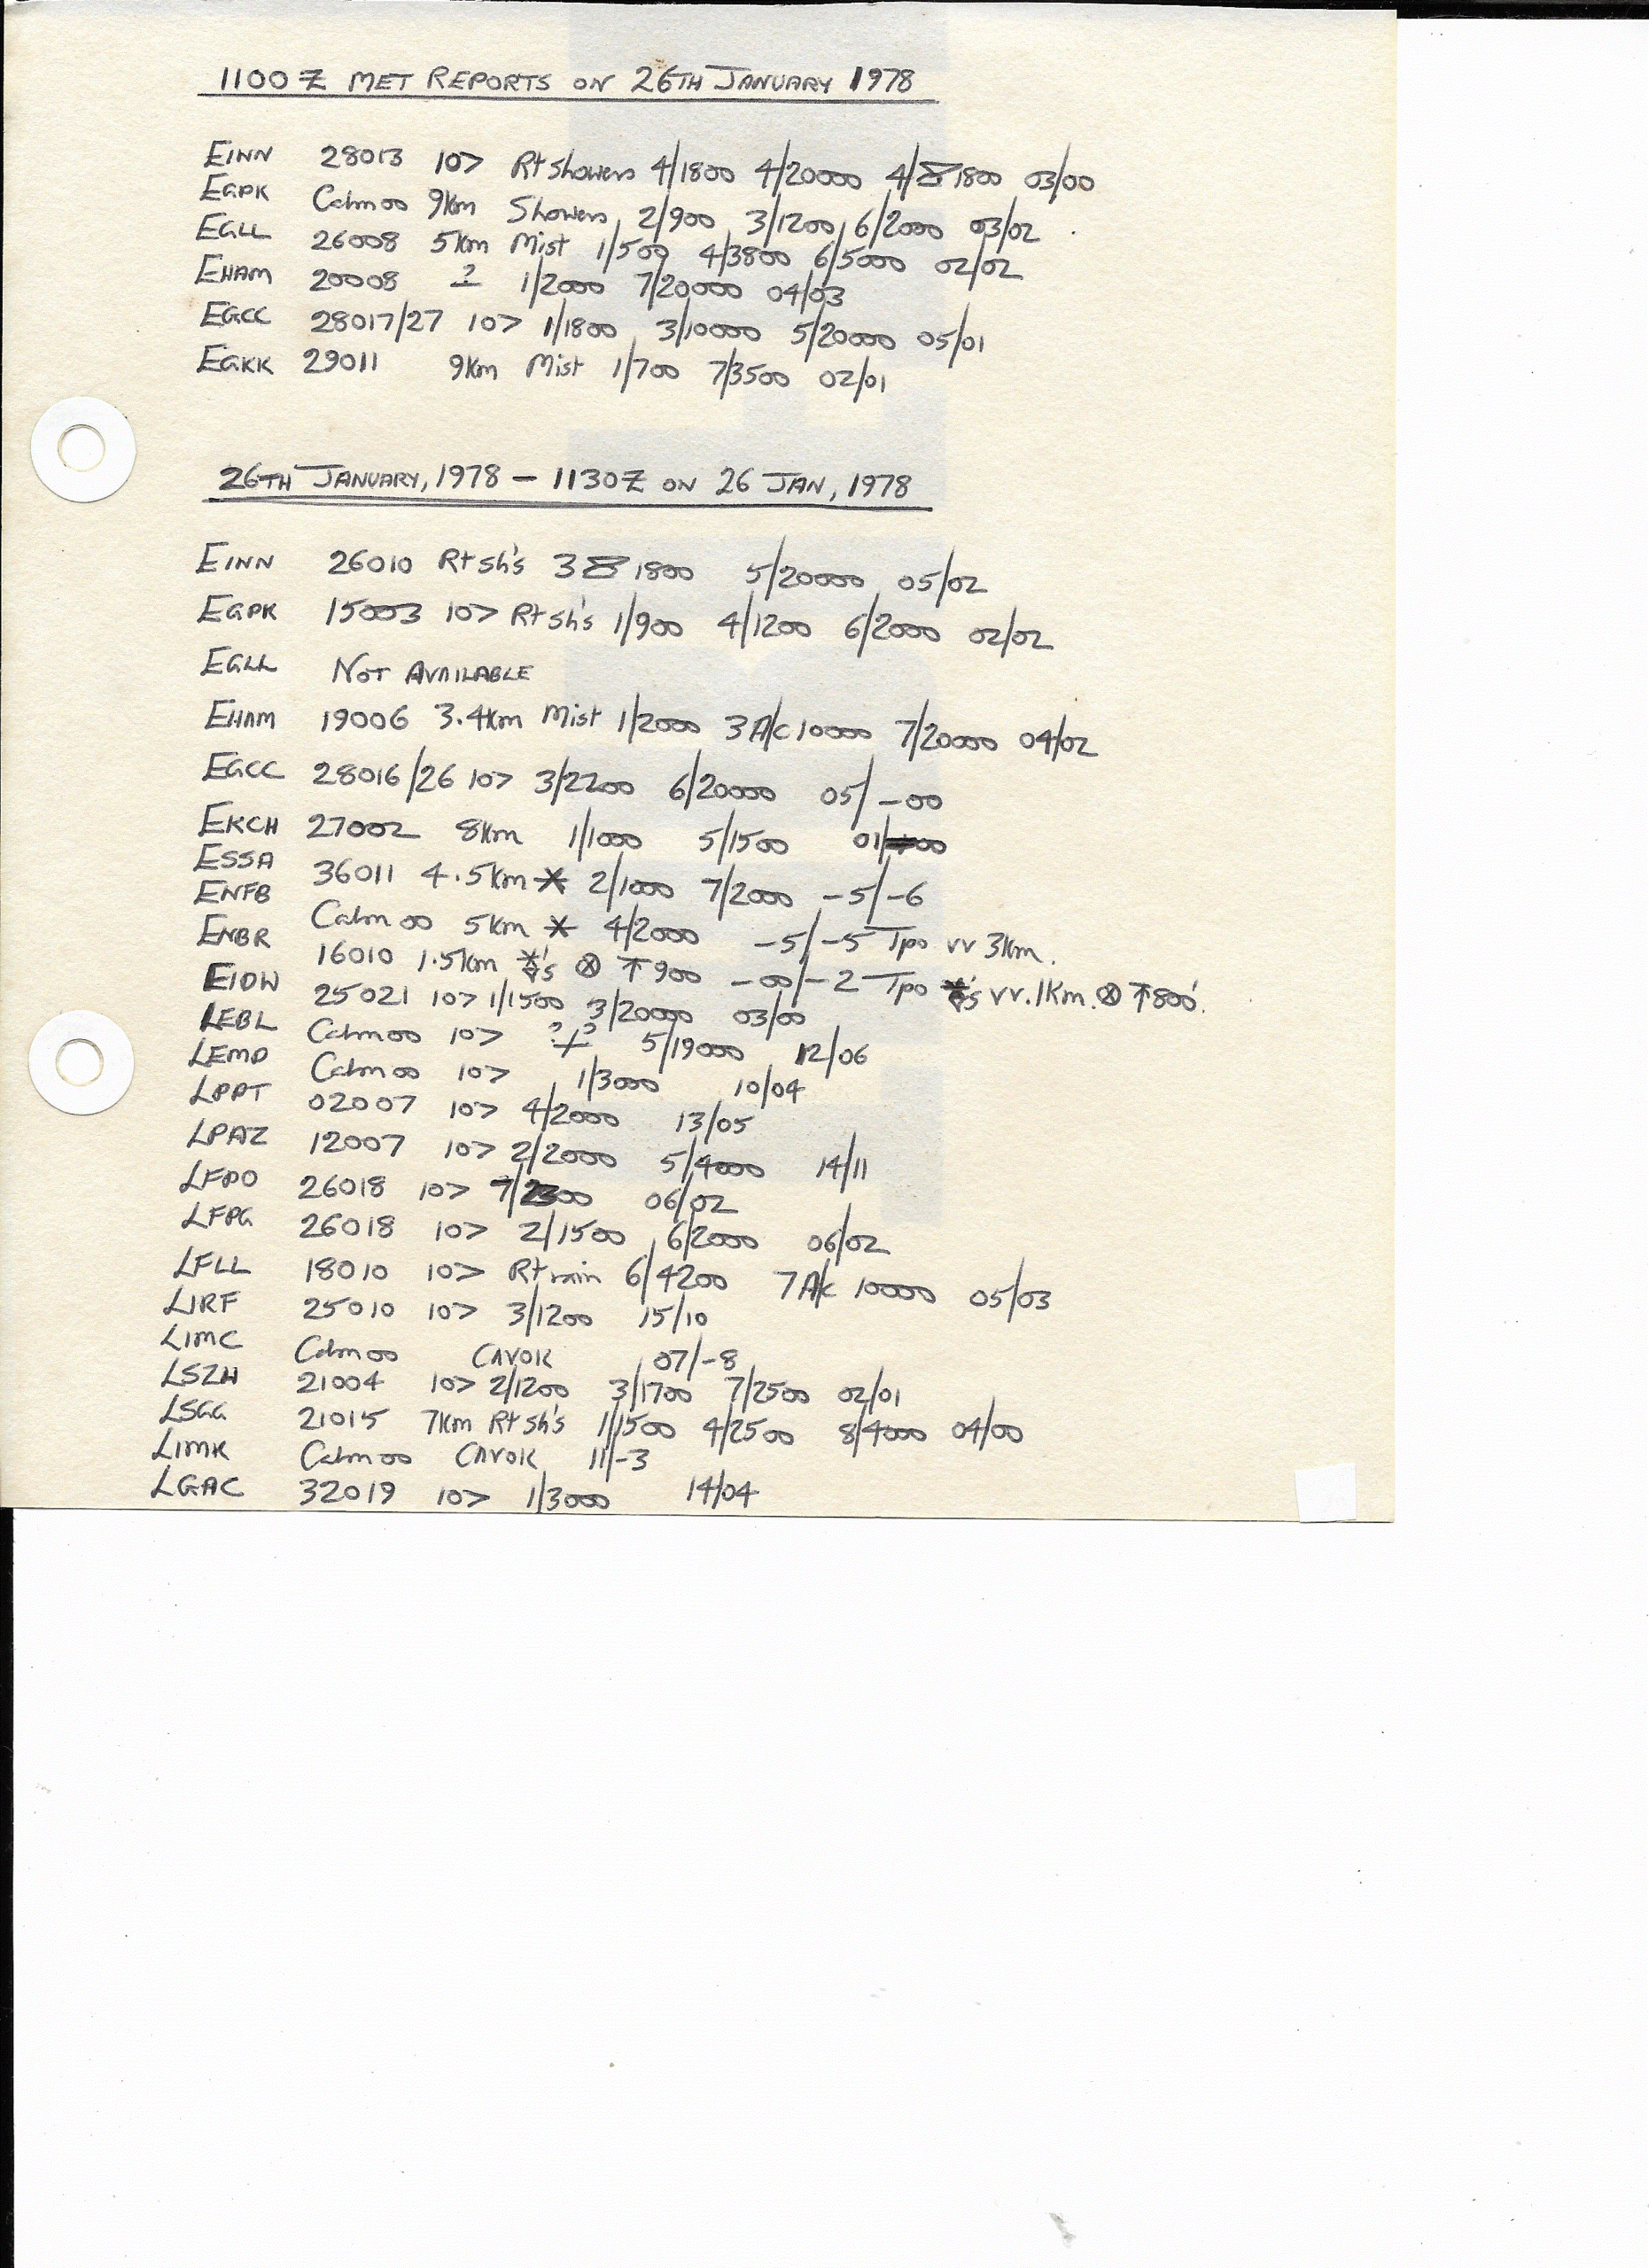 1100Z MET REPORTS ON 26TH JANUARY 1978
EINN 28013 10> Rt Showers 4/1800 4/20000 4/ 1800 03/00
EGPK Calm 00 9Km Showers 2/900 3/1200 6/2000 03/02
EGLL 26008 5Km Mist 1/500 4/3800 6/5000 02/02
EHAM 20008 ? 1/2000 7/20000 04/03
EGCC 28017/27 10> 1/1800 3/10000 5/20000 05/01
EGKK 29011 9Km Mist 1/700 7/3500 02/01
26TH JANUARY, 1978 – 1130Z ON 26 JAN, 1978
EINN 26010 Rt sh's 3 1800 5/20000 05/02
EGPK 15003 10> Rt sh's 1/900 4/1200 6/2000 02/02
EGLL NOT AVAILABLE
EHAM 19006 3.4Km Mist 1/2000 3 A/c 10000 7/20000 04/02
EGCC 28016/26 10> 3/2200 6/20000 05/-00
EKCH 27002 8Km 1/1000 5/1500 01/00
ESSA 36011 4.5Km * 2/1000 7/2000 -5/-6
ENFB Calm 00 5Km * 4/2000 -5/-5 Tpo vv 3Km.
ENBR 16010 1.5Km *'s ⊗ ↑900 -00/-2 Tpo *'s vv. 1Km. ⊗ ↑800'.
EIDW 25021 10> 1/1500 3/20000 03/00
LEBL Calm 00 10> ?/? 5/19000 12/06
LEMD Calm 00 10> 1/3000 10/04
LPPT 02007 10> 4/2000 13/05
LPAZ 12007 10> 2/2000 5/4000 14/11
LFPO 26018 10> 06/02
LFPG 26018 10> 2/1500 6/2000 06/02
LFLL 18010 10> Rt rain 6/4200 7 A/c 10000 05/03
LIRF 25010 10> 3/1200 15/10
LIMC Calm 00 CAVOK 07/-8
LSZH 21004 10> 2/1200 3/1700 7/2500 02/01
LSGG 21015 7Km Rt sh's 1/1500 4/2500 8/4000 04/00
LIMK Calm 00 CAVOK 11/-3
LGAC 32019 10> 1/3000 14/04